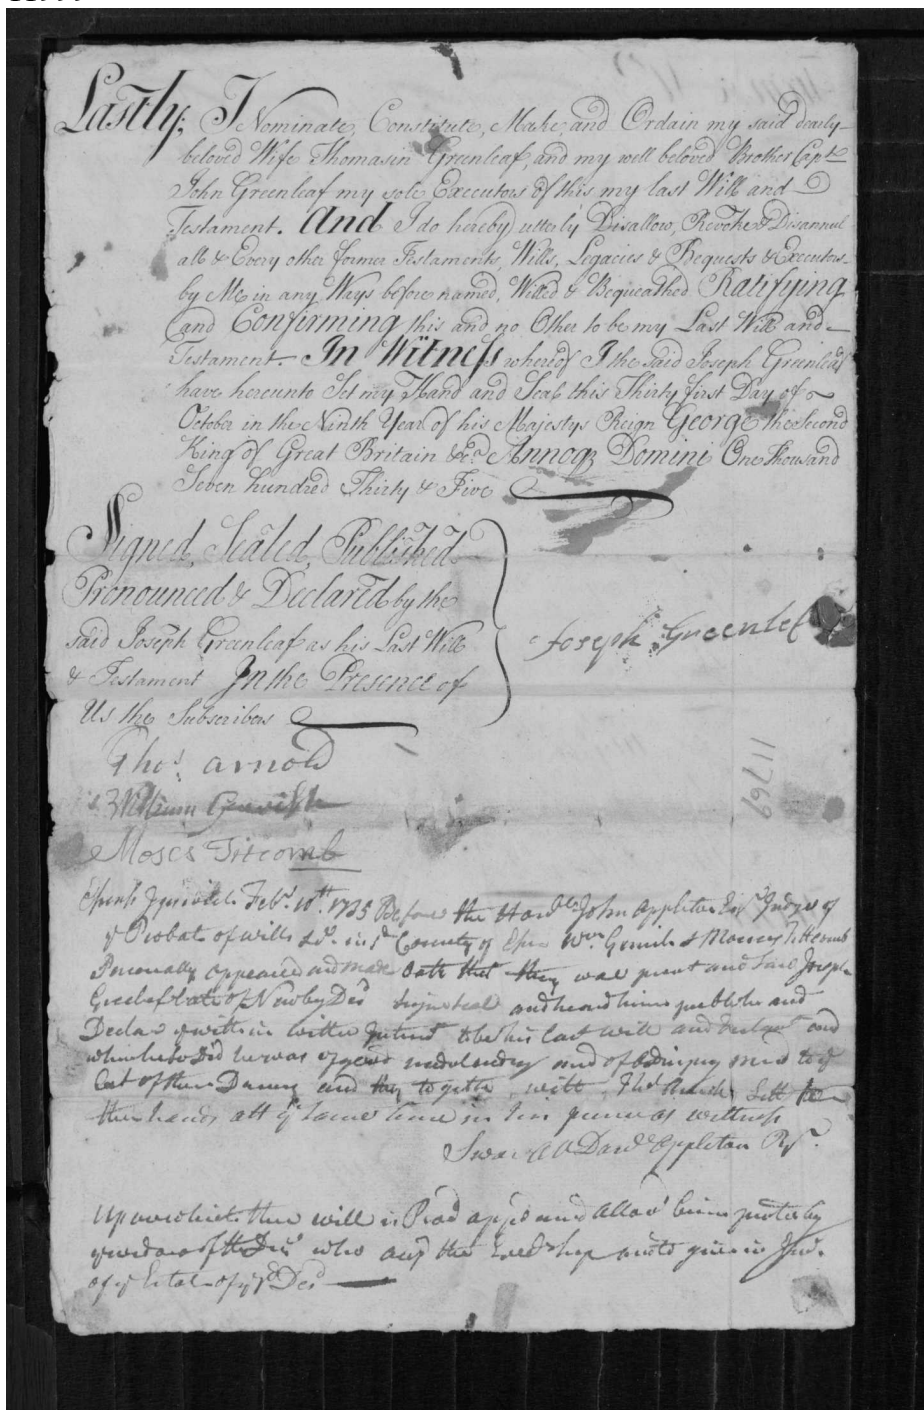 Lastly; I Nominate, Constitute, Make, and Ordain my said dearly
beloved Wife Thomasin Greenleaf, and my well beloved Brother Capt
John Greenleaf my sole Executors of this my last Will and
Testament. And I do hereby utterly Disallow, Revoke & Disannul
all & Every other former Testaments, Wills, Legacies & Bequests & Executors
by Me in any Ways before named, Willed & Bequeathed Ratifying
and Confirming this and no Other to be my Last Will and
Testament. In Witness whereof I the said Joseph Greenleaf
have hereunto Set my Hand and Seal this Thirty first Day of
October in the Ninth Year of his Majestys Reign George the Second
King of Great Britain &c Annoq Domini One thousand
Seven hundred Thirty & Five
Signed, Sealed, Published
Pronounced & Declared by the
said Joseph Greenleaf as his Last Will
& Testament In the Presence of
Us the Subscribers
Joseph Greenlef
Thos. Arnold
William Gerrish
Moses Titcomb
11769
Feb. 10th. 1735 Before the Honble John Appleton Esq Judge of
y Probat of wills &c. in County of Essex Wm Gerrish & Moses Tittcomb
Personally appeared and made oath that they was present and Saw Joseph
Greenleaf late of Newby Decd Signe seal and heard him publish and
Declar will and
which he Did he was of good and of Disposing mind to y
best of their and they together with Thos Arnold Sett
their hands att y Same time in his as witness
Danl Appleton
Upon which this will is and Allowd being
who the
of y Estate of y Decd